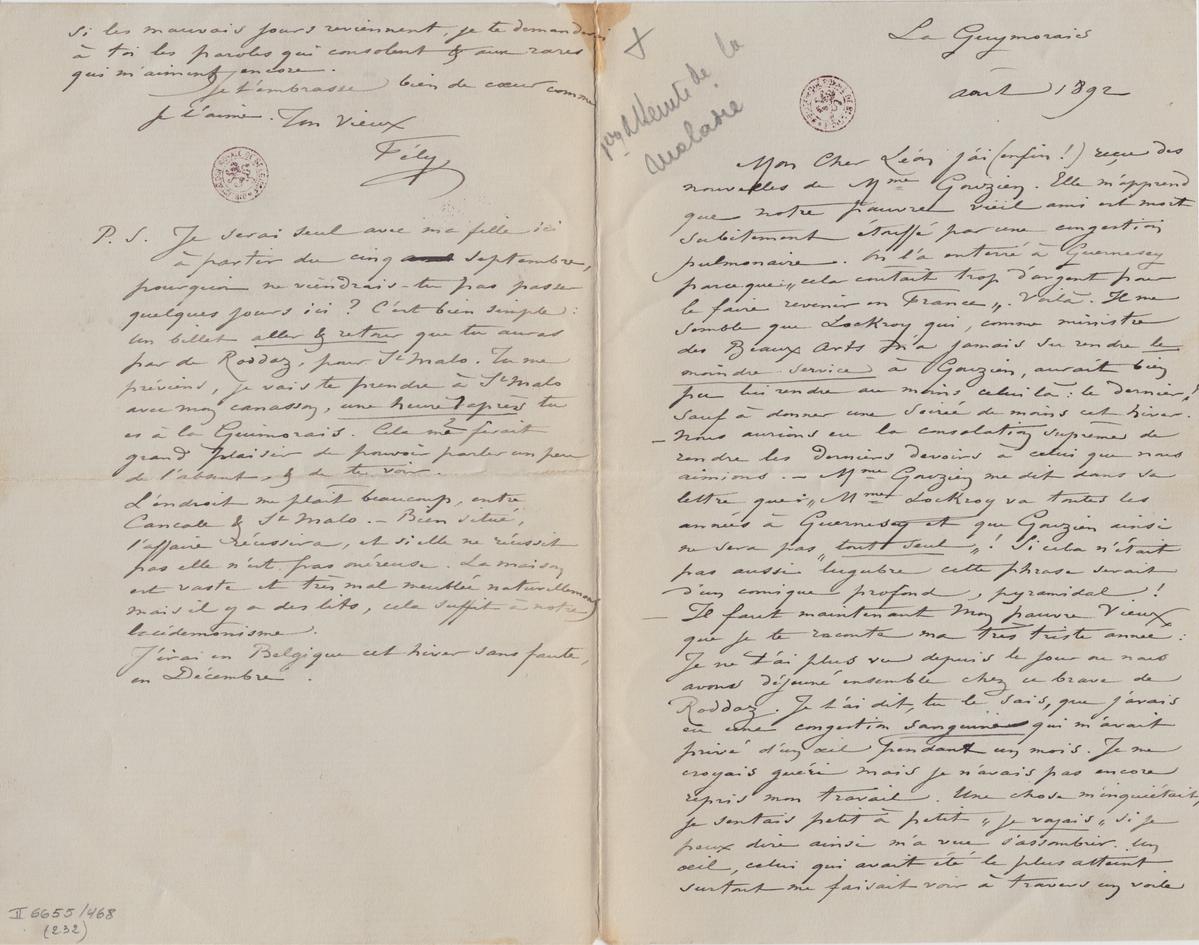 si les mauvais jours reviennent, je te demanderai
à toi les paroles qui consolent & aux rares
qui m'aiment encore.
Je t'embrasse bien de cœur comme
je t'aime. Ton vieux
Fély
P. S. Je serai seul avec ma fille ici
à partir du cinq septembre,
pourquoi ne viendrais-tu pas passer
quelques jours ici ? C'est bien simple :
un billet aller & retour que tu auras
par de Roddaz, pour St Malo. Tu me
préviens, je vais te prendre à St Malo
avec mon canasson, une heure après tu
es à la Guimorais. Cela me ferait
grand plaisir de pouvoir parler un peu
de l'absent, & de te voir.
L'endroit me plait beaucoup, entre
Cancale & St Malo. – Bien situé,
l'affaire réussira, et si elle ne réussit
pas elle n'est pas onéreuse. La maison
est vaste et très mal meublée naturellement
mais il y a des lits, cela suffit à notre
lacédemonisme.
J'irai en Belgique cet hiver sans faute,
en Décembre.
II 6655/468
(232)
La Guymorais
août 1892
de la
maladie
Mon Cher Léon j'ai (enfin !) reçu des
nouvelles de Mme Gouzien. Elle m'apprend
que notre pauvre vieil ami est mort
subitement etouffé par une congestion
pulmonaire. On l'a enterré à Guernesey
parceque „cela coutait trop d'argent pour
le faire revenir en France„. Voilà. Il me
semble que Lockroy qui, comme ministre
des Beaux Arts n'a jamais su rendre le
moindre service à Gouzien, aurait bien
pu lui rendre au moins celui là : le dernier,
sauf à donner une Soirée de moins cet hiver.
– Nous aurions eu la consolation suprême de
rendre les derniers devoirs à celui que nous
aimions. – Mme Gouzien me dit dans sa
lettre que : „Mme Lockroy va toutes les
années à Guernesey et que Gouzien ainsi
ne sera pas „tout seul„ ! Si cela n'était
pas aussi lugubre cette phrase serait
d'un comique profond, pyramidal !
– Il faut maintenant mon pauvre Vieux
que je te raconte ma très triste année :
Je ne t'ai plus vu depuis le jour ou nous
avons déjeuné ensemble chez ce brave de
Roddaz. Je t'ai dit, tu le sais, que j'avais
eu une congestion sanguine qui m'avait
privé d'un œil pendant un mois. Je me
croyais guéri mais je n'avais pas encore
repris mon travail. Une chose m'inquiétait,
je sentais petit à petit „je voyais„ si je
peux dire ainsi m'a vue s'assombrir. Un
œil, celui qui avait été le plus atteint
surtout me faisait voir à travers un voile